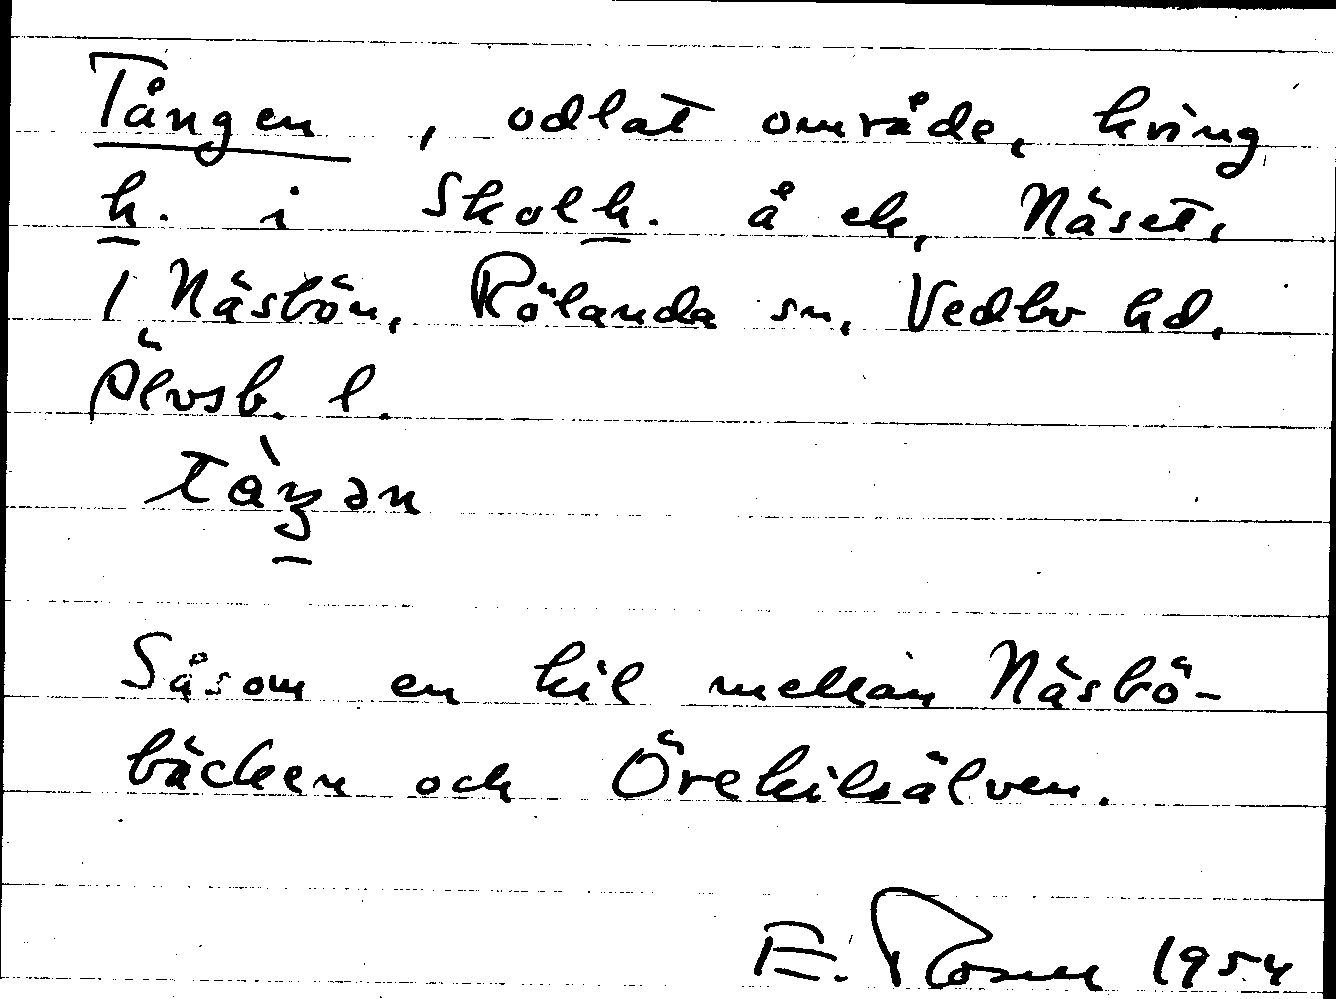 Tången, odlat område, kring
h. i Skolh. å ek, Näset,
1 Näsbön, Rölanda sn, Vedbo hd,
Älvsb. l.
tàŋən
Såsom en kil mellan Näsbö-
bäcken och Örekilsälven.
E. Rosell 1954